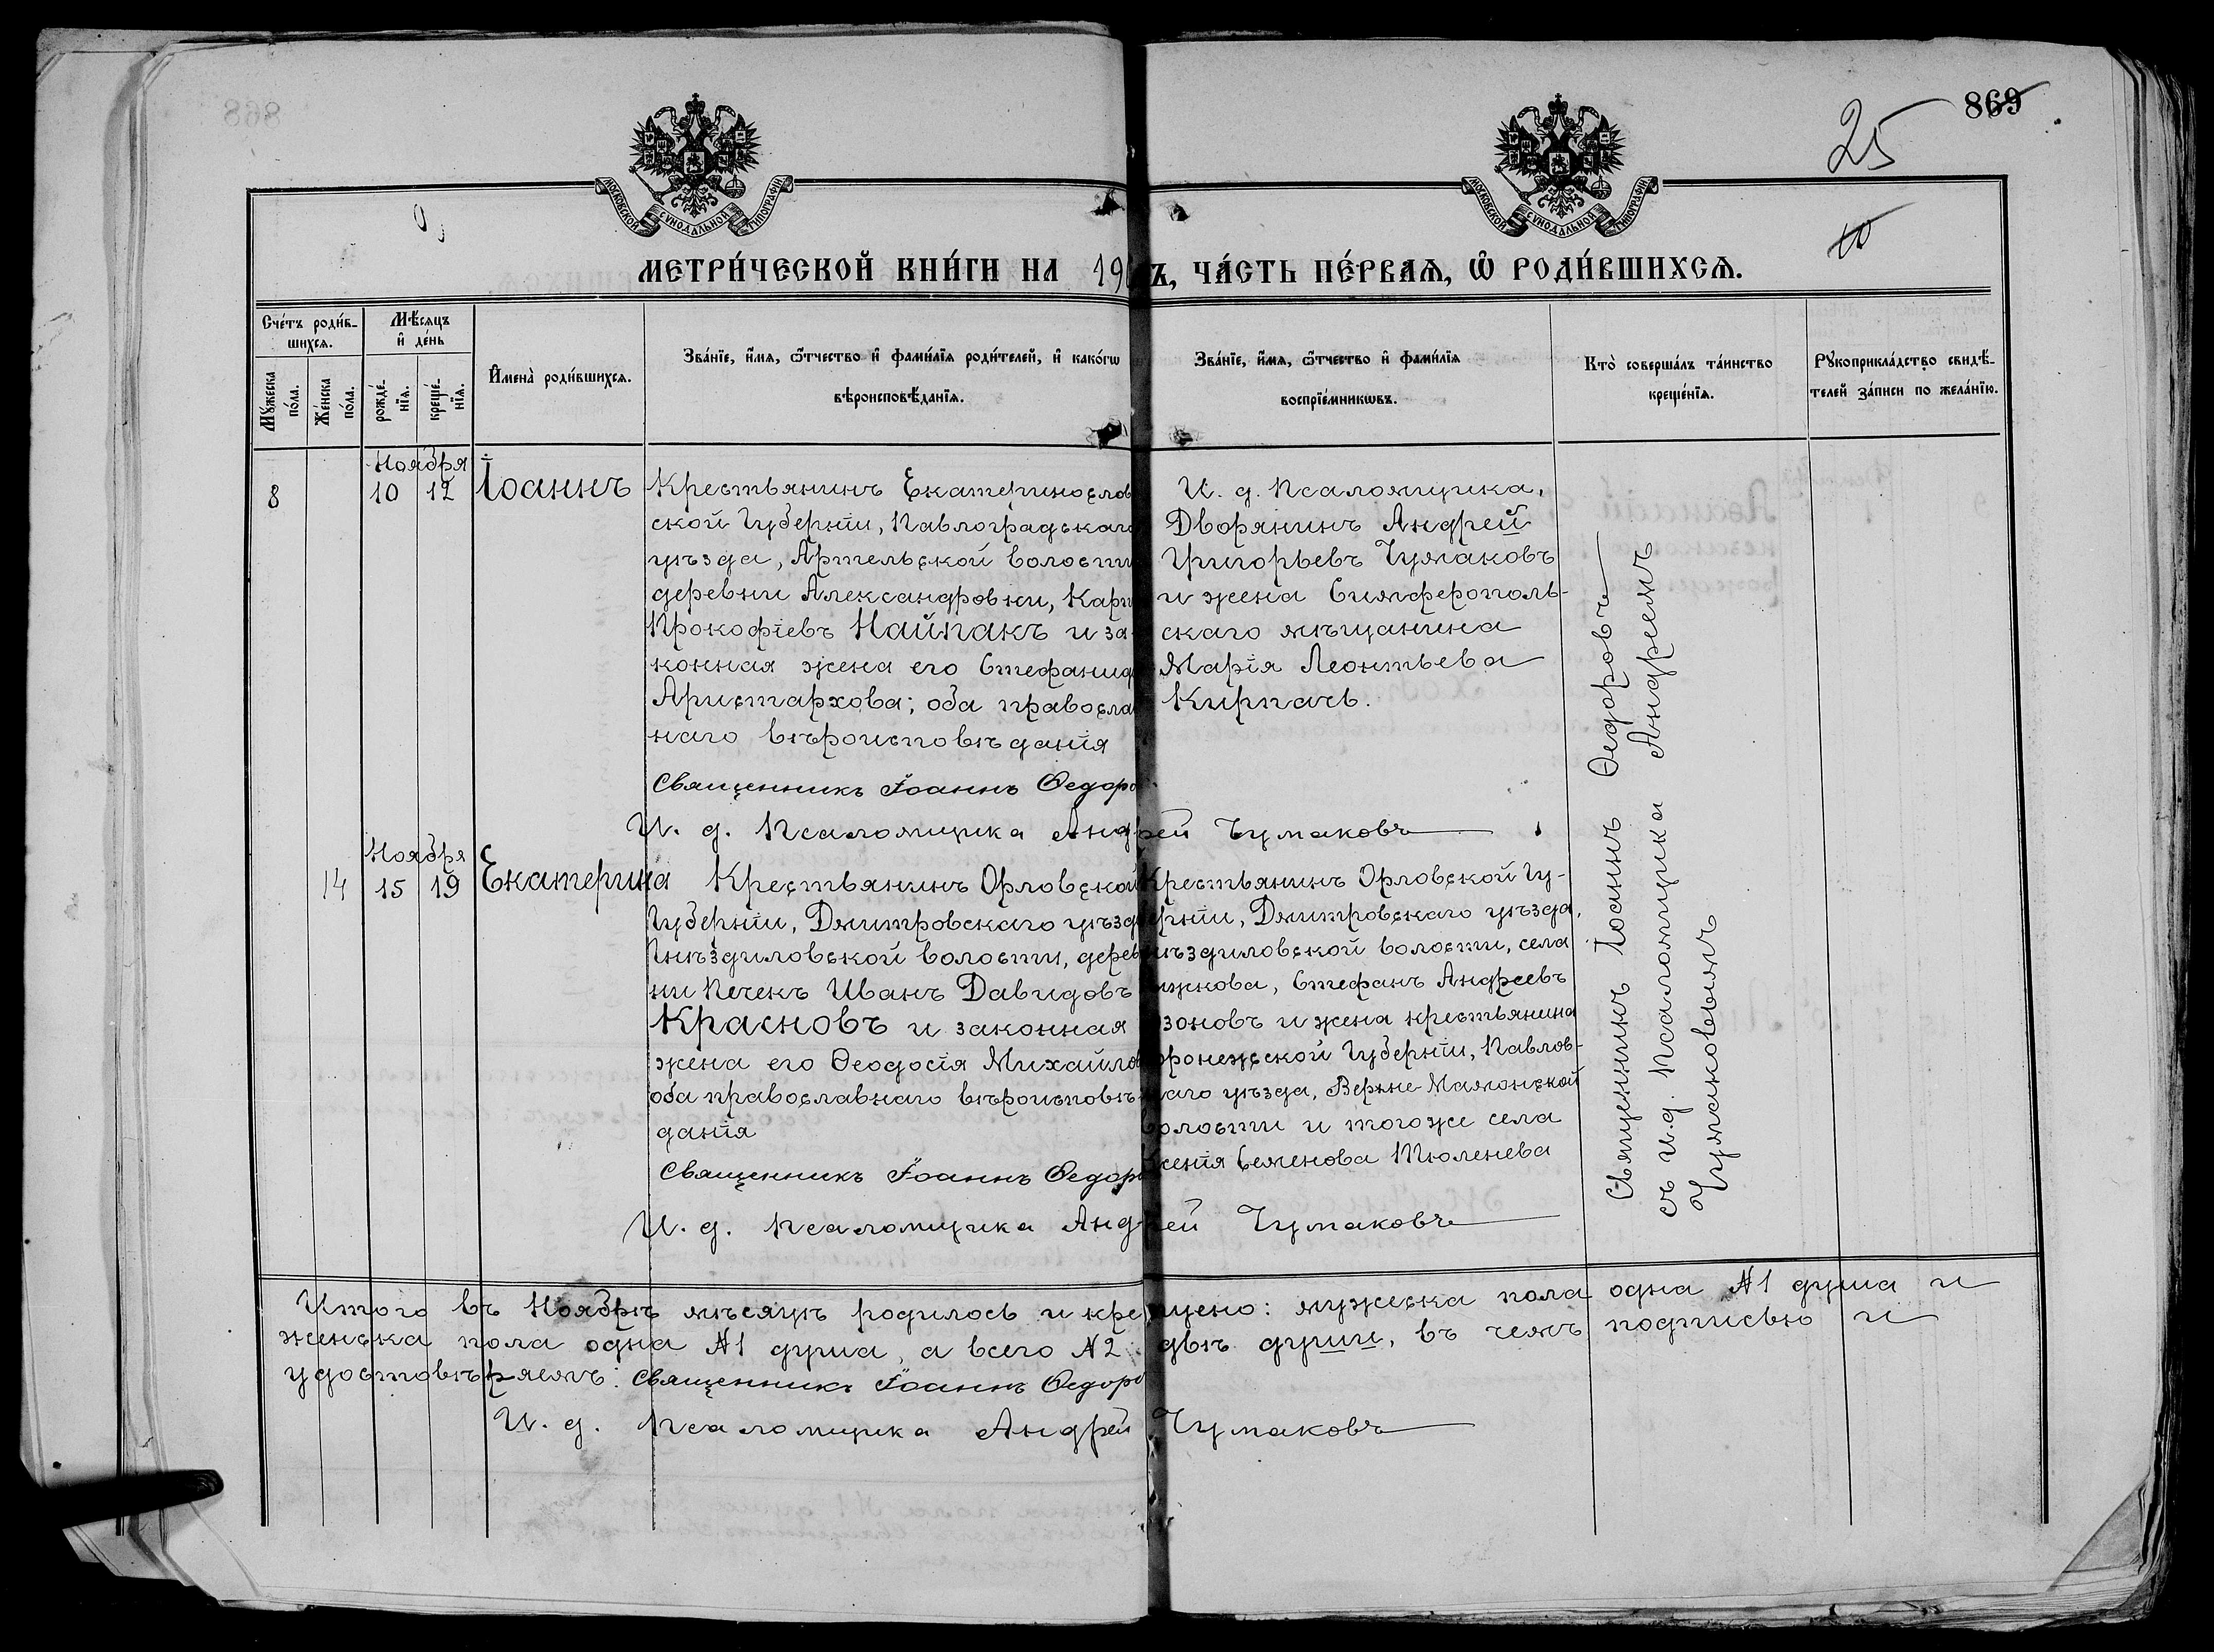 868
869
25
10
МОСКОВСКОЙ СѴНОДАЛЬНОЙ ТИПОГРАФІИ
МОСКОВСКОЙ СѴНОДАЛЬНОЙ ТИПОГРАФІИ
МЕТРИ́ЧЕСКОЙ КНИ́ГИ НА 19
Ъ, ЧА́СТЬ ПЕ́РВАѦ, Ѽ РОДИ́ВШИХСѦ.
Сче́тъ роди́в-
шихсѧ.
Мꙋжеска по́ла.
Же́нска по́ла.
Мѣ́сѧцъ
и҆ де́нь
рожде́-
нїѧ.
креще́-
нїѧ.
И҆мена̀ роди́вшихсѧ.
Зва́нїе, и҆́мѧ, ѻ҆́тчество и҆ фами́лїѧ роди́телей, и҆ како́гѡ
вѣроисповѣ́данїѧ.
Зва́нїе, и҆́мѧ, ѻ҆́тчество и҆ фами́лїѧ
воспрїе́мникѡвъ.
Кто̀ соверша́лъ та́инство
креще́нїѧ.
Рꙋкоприкла́дство свидѣ́-
телей за́писи по жела́нїю.
Ноября
8 10 12 Іоаннъ
Крестьянинъ Екатеринослов
ской Губерніи, Павлоградскаго
уѣзда, Артельской волости
деревни Александровки, Карп
Прокофіевъ Найпакъ и за-
конная жена его Стефанид
Аристархова; оба правосла
наго вѣроисповѣданія
Священникъ Іоаннъ Ѳедоро
И. д. Псаломщика Андрей Чумаковъ
И. д. Псаломщика,
Дворянинъ Андрей
Григорьевъ Чумаковъ
и жена Симферополь-
скаго мѣщанина
Марія Леонтьева
Кирпачъ.
Ноября
14 15 19 Екатерина
Крестьянинъ Орловской
Губерніи, Дмитровскаго уѣзд
Гнѣздиловской волости, дерев
ни Печекъ Иванъ Давидовъ
Красновъ и законная
жена его Ѳеодосія Михайло
оба православнаго вѣроисповѣ
данія
Священникъ Іоаннъ Ѳедоро
И. д. Псаломщика Андрей Чумаковъ
Крестьянинъ Орловской Гу-
ерніи, Дмитровскаго уѣзда,
нѣздиловской волости, села
ижкова, Стефанъ Андреевъ
зоновъ и жена крестьянина
оронежской Губерніи, Павлов-
каго уѣзда, Верхне-Мамонской
волости и тогоже села
сенія Семенова Тюленева
Священникъ Іоаннъ Ѳедоровъ
съ и.д. Псаломщика Андреемъ
Чумаковымъ
Итого въ Ноябрѣ мѣсяцѣ родилось и крещено: мужеска пола одна №1 душа и
женска пола одна №1 душа, а всего №2 двѣ души, въ чемъ подписью и
удостовѣряемъ: Священникъ Іоаннъ Ѳедоро
И. д. Псаломщика Андрей Чумаковъ